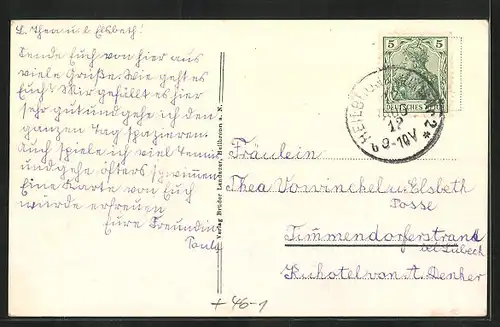 L. Thea u. l. Elsbeth!
Sende Euch von hier aus
viele Grüße. Wie geht es
Euch? Mir gefällt es hier
sehr gut und gehe ich den
ganzen Tag spazieren.
Auch spiele ich viel Tennis
und gehe öfters schwimmen.
Eine Karte von Euch
würde erfreuen
Eure Freundin
Paula
Verlag Brüder Landauer, Heilbronn a. N.
5 5
DEUTSCHES REICH
HEILBRONN
12
9-10V
* 2 *
Fräulein
Thea Vowinckel u. Elsbeth
Posse
Timmendorferstrand
bei Lübeck
Kurhotel von A. Denker
+ 46-1